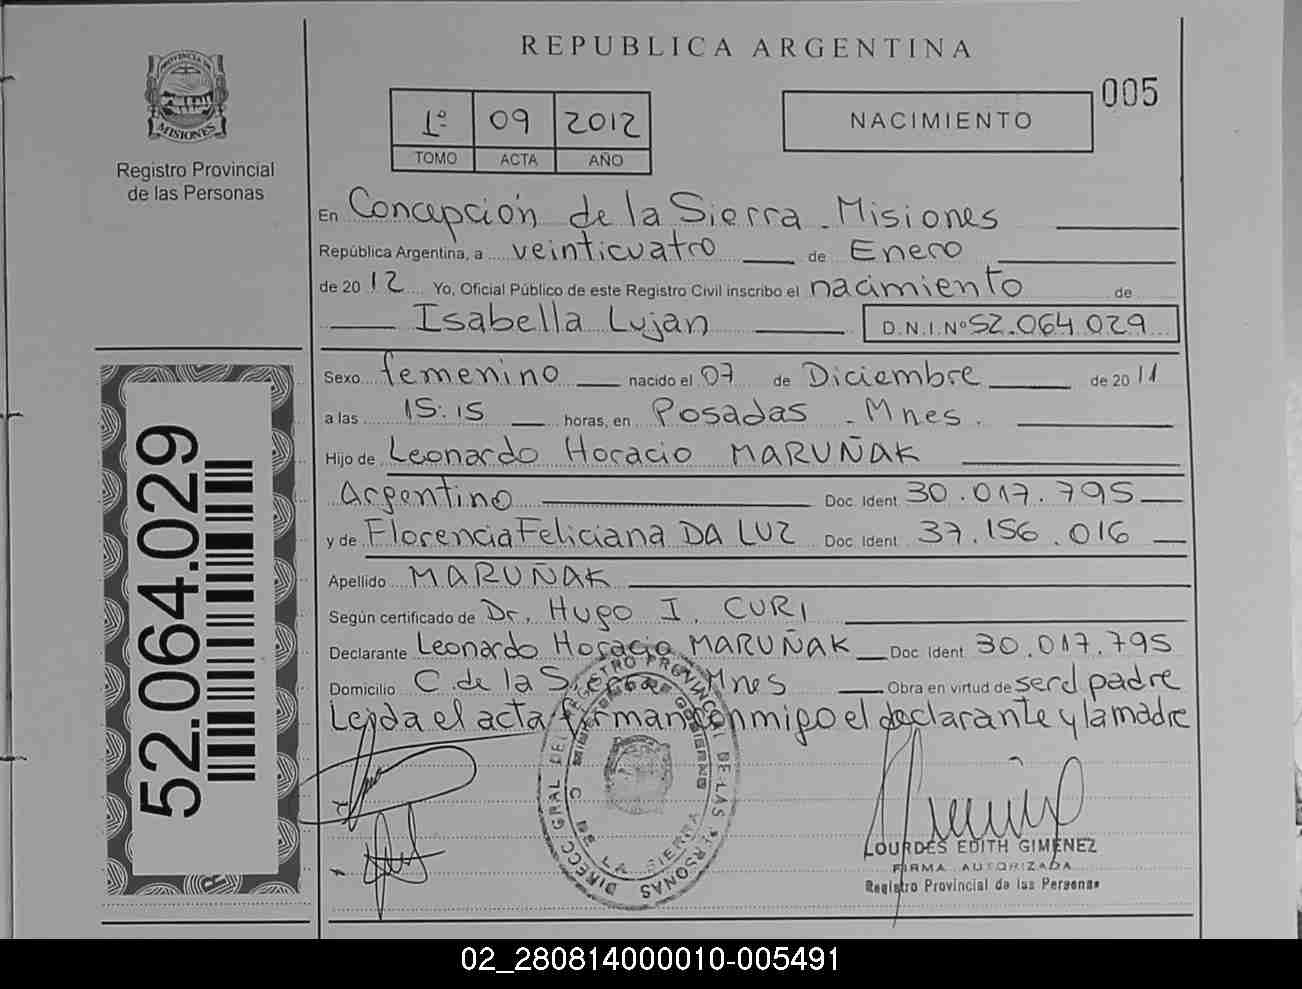 REPUBLICA ARGENTINA
PROVINCIA DE MISIONES
Registro Provincial
de las Personas
1º 09 2012
TOMO ACTA AÑO
NACIMIENTO
005
En Concepción de la Sierra - Misiones
República Argentina, a veinticuatro de Enero
de 2012 Yo, Oficial Público de este Registro Civil inscribo el nacimiento de
Isabella Lujan D.N.I.Nº 52.064.029
Sexo femenino nacido el 07 de Diciembre de 2011
a las 15:15 horas, en Posadas - Mnes.
Hijo de Leonardo Horacio MARUÑAK
Argentino Doc. Ident. 30.017.795
y de Florencia Feliciana DA LUZ Doc. Ident. 37.156.016
Apellido MARUÑAK
Según certificado de Dr. Hugo I. CURI
Declarante Leonardo Horacio MARUÑAK Doc. Ident. 30.017.795
Domicilio C de la Sierra Mnes Obra en virtud de ser el padre
Leida el acta firman conmigo el declarante y la madre
52.064.029
DIRECC. GRAL DEL REGISTRO PROVINCIAL DE LAS PERSONAS
C DE LA SIERRA
LOURDES EDITH GIMENEZ
FIRMA AUTORIZADA
Registro Provincial de las Personas
02_280814000010-005491